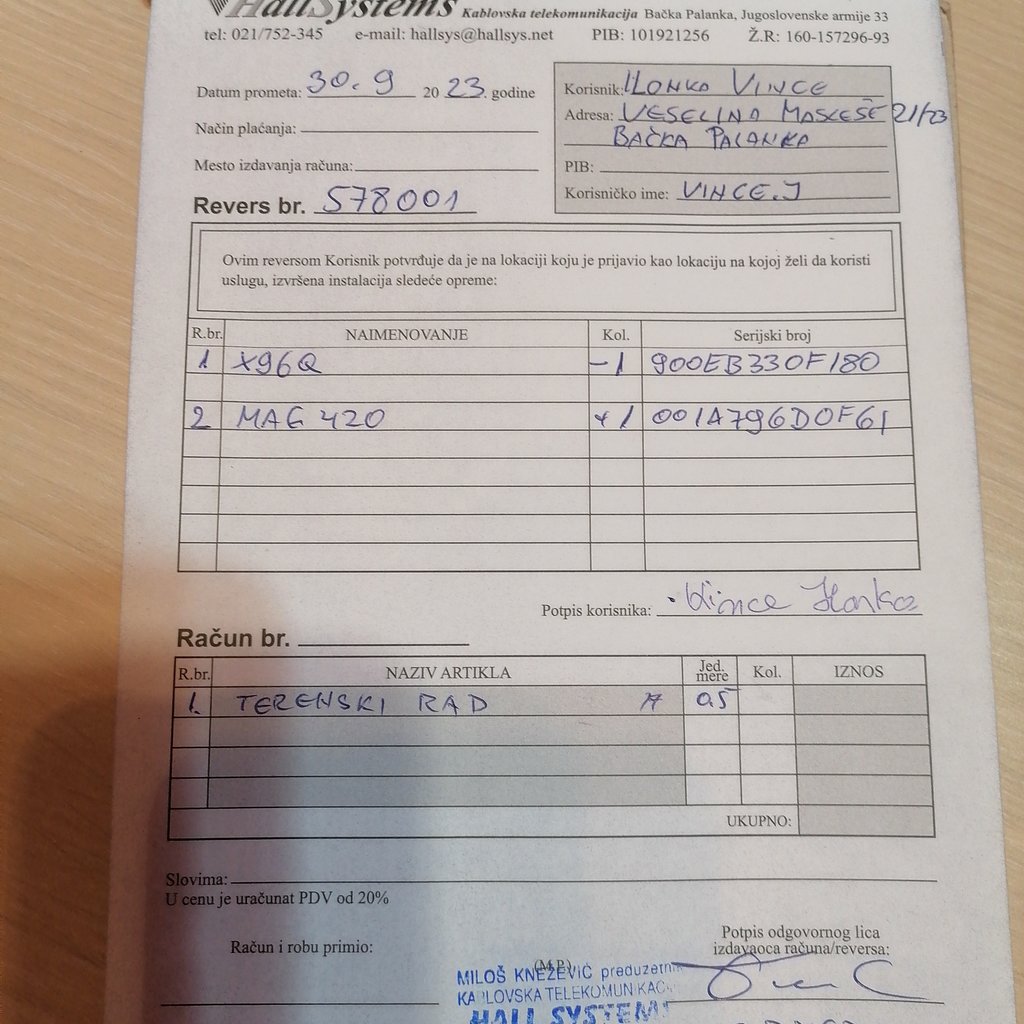 HallSystems Kablovska telekomunikacija Bačka Palanka, Jugoslovenske armije 33
tel: 021/752-345 e-mail: hallsys@hallsys.net PIB: 101921256 Ž.R: 160-157296-93
Datum prometa: 30.9 2023. godine
Način plaćanja:
Mesto izdavanja računa:
Revers br. 578001
Korisnik: ILONKA VINCE
Adresa: VESELINA MASLEŠE 21/73
BAČKA PALANKA
PIB:
Korisničko ime: VINCE.J
Ovim reversom Korisnik potvrđuje da je na lokaciji koju je prijavio kao lokaciju na kojoj želi da koristi
uslugu, izvršena instalacija sledeće opreme:
R.br. NAIMENOVANJE Kol. Serijski broj
1 X96Q -1 900EB330F180
2 MAG 420 +1 001A796D0F61
Potpis korisnika: Vince Ilonka
Račun br.
R.br. NAZIV ARTIKLA Jed. mere Kol. IZNOS
1. TERENSKI RAD 0.5
UKUPNO:
Slovima:
U cenu je uračunat PDV od 20%
Račun i robu primio:
(M.P.)
Potpis odgovornog lica
izdavaoca računa/reversa:
MILOŠ KNEŽEVIĆ preduzetnik
KABLOVSKA TELEKOMUNIKAC
HALL SYSTEM